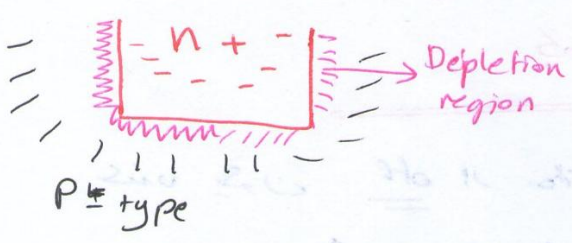 n +
Depletion
region
P type